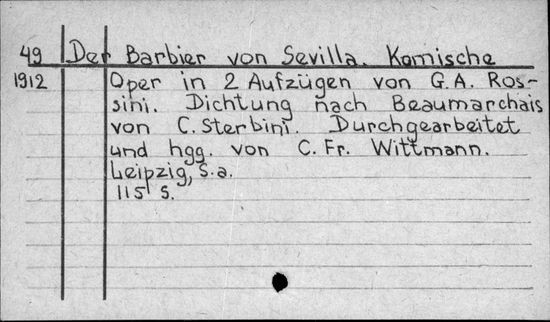 49 Der Barbier von Sevilla. Komische
1912 Oper in 2 Aufzügen von G.A. Ros-
sini. Dichtung nach Beaumarchais
von C. Sterbini. Durchgearbeitet
und hgg. von C. Fr. Wittmann.
Leipzig, s.a.
115 S.